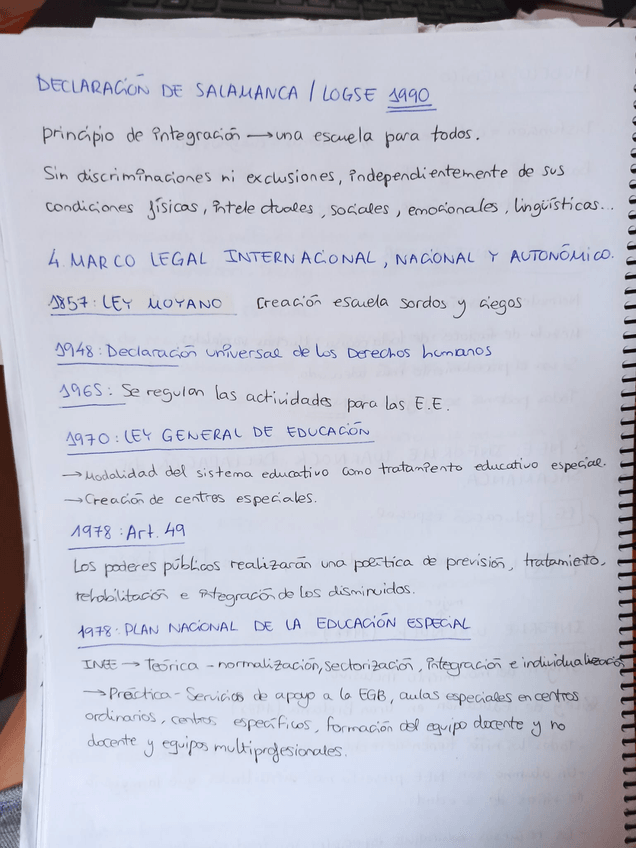 DECLARACIÓN DE SALAMANCA / LOGSE 1990
principio de integración → una escuela para todos.
Sin discriminaciones ni exclusiones, independientemente de sus
condiciones físicas, intelectuales, sociales, emocionales, lingüísticas...
4. MARCO LEGAL INTERNACIONAL, NACIONAL Y AUTONÓMICO.
1857: LEY MOYANO Creación escuela sordos y ciegos
1948: Declaración universal de los Derechos humanos
1965: Se regulan las actividades para las E.E.
1970: LEY GENERAL DE EDUCACIÓN
→ Modalidad del sistema educativo como tratamiento educativo especial.
→ Creación de centros especiales.
1978: Art. 49
Los poderes públicos realizarán una política de previsión, tratamiento,
rehabilitación e integración de los disminuidos.
1978: PLAN NACIONAL DE LA EDUCACIÓN ESPECIAL
INEE → Teórica - normalización, sectorización, integración e individualización
→ Práctica - Servicios de apoyo a la EGB, aulas especiales en centros
ordinarios, centros específicos, formación del equipo docente y no
docente y equipos multiprofesionales.